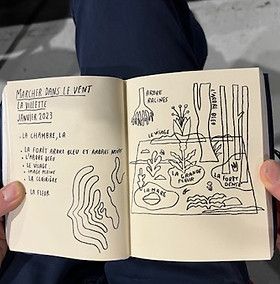 MARCHER DANS LE VENT
LA VILLETTE
JANVIER 2023
. LA CHAMBRE, LÀ
. LA FORÊT ARBRE BLEU ET
. L'ARBRE BLEU
. LE VISAGE
. IMAGE PLEINE
. LA CLAIRIÈRE
. LA FLEUR
ARBRE
RACINES
L'ARBRE BLEU
LE VISAGE
LA GRANDE
FLEUR
LA MARE
LA FORÊT
DENSE